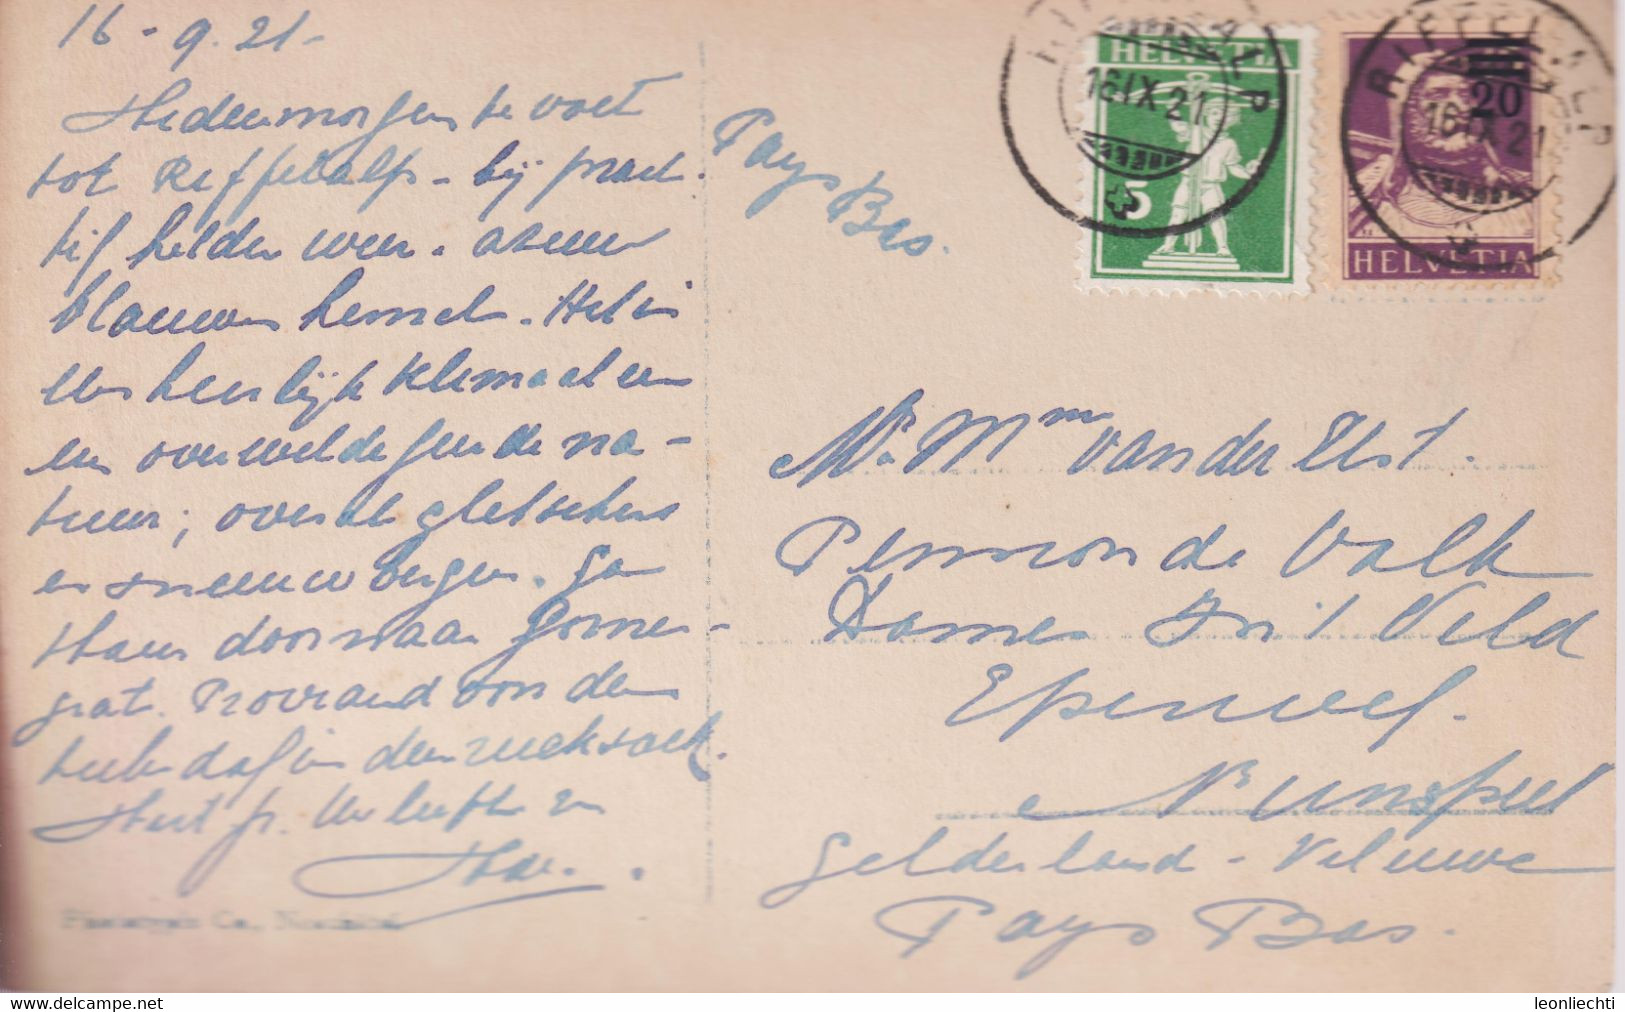 16-9.21-
Hedenmorgen te voet
tot Riffelalp - bij prach-
tig helder weer. azuur
blauwen hemel. Het is
een heerlijk klimaat en
een overweldigende na-
tuur; overal gletschers
en sneeuwbergen. Ga
thans door naar Gorner-
grat. Proviand voor den
heelen dag in den rucksack.
Hart gr. Uw liefh. zn
Pays
Bas.
HELVETIA
5
RIFFELALP
16IX21
HELVETIA
20
RIFFELALP
16IX21
Mr. Mme van der Elst.
Pension de Valk
Dames In 't Veld
Eperweg.
Nunspeet
Gelderland - Veluwe
Pays Bas.
leonliechti